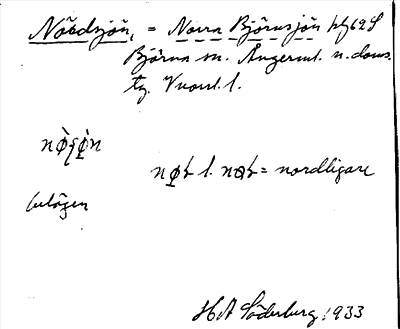 Nöådsjön, = Norra Björnsjön bl 62 S
Björna sn. Ångerml. n. doms.
tg. Vuorel. l.
nø̀ʂø̀n
nø̨ʈ l. nəʈ = nordligare
belägen
H A Söderberg 1933